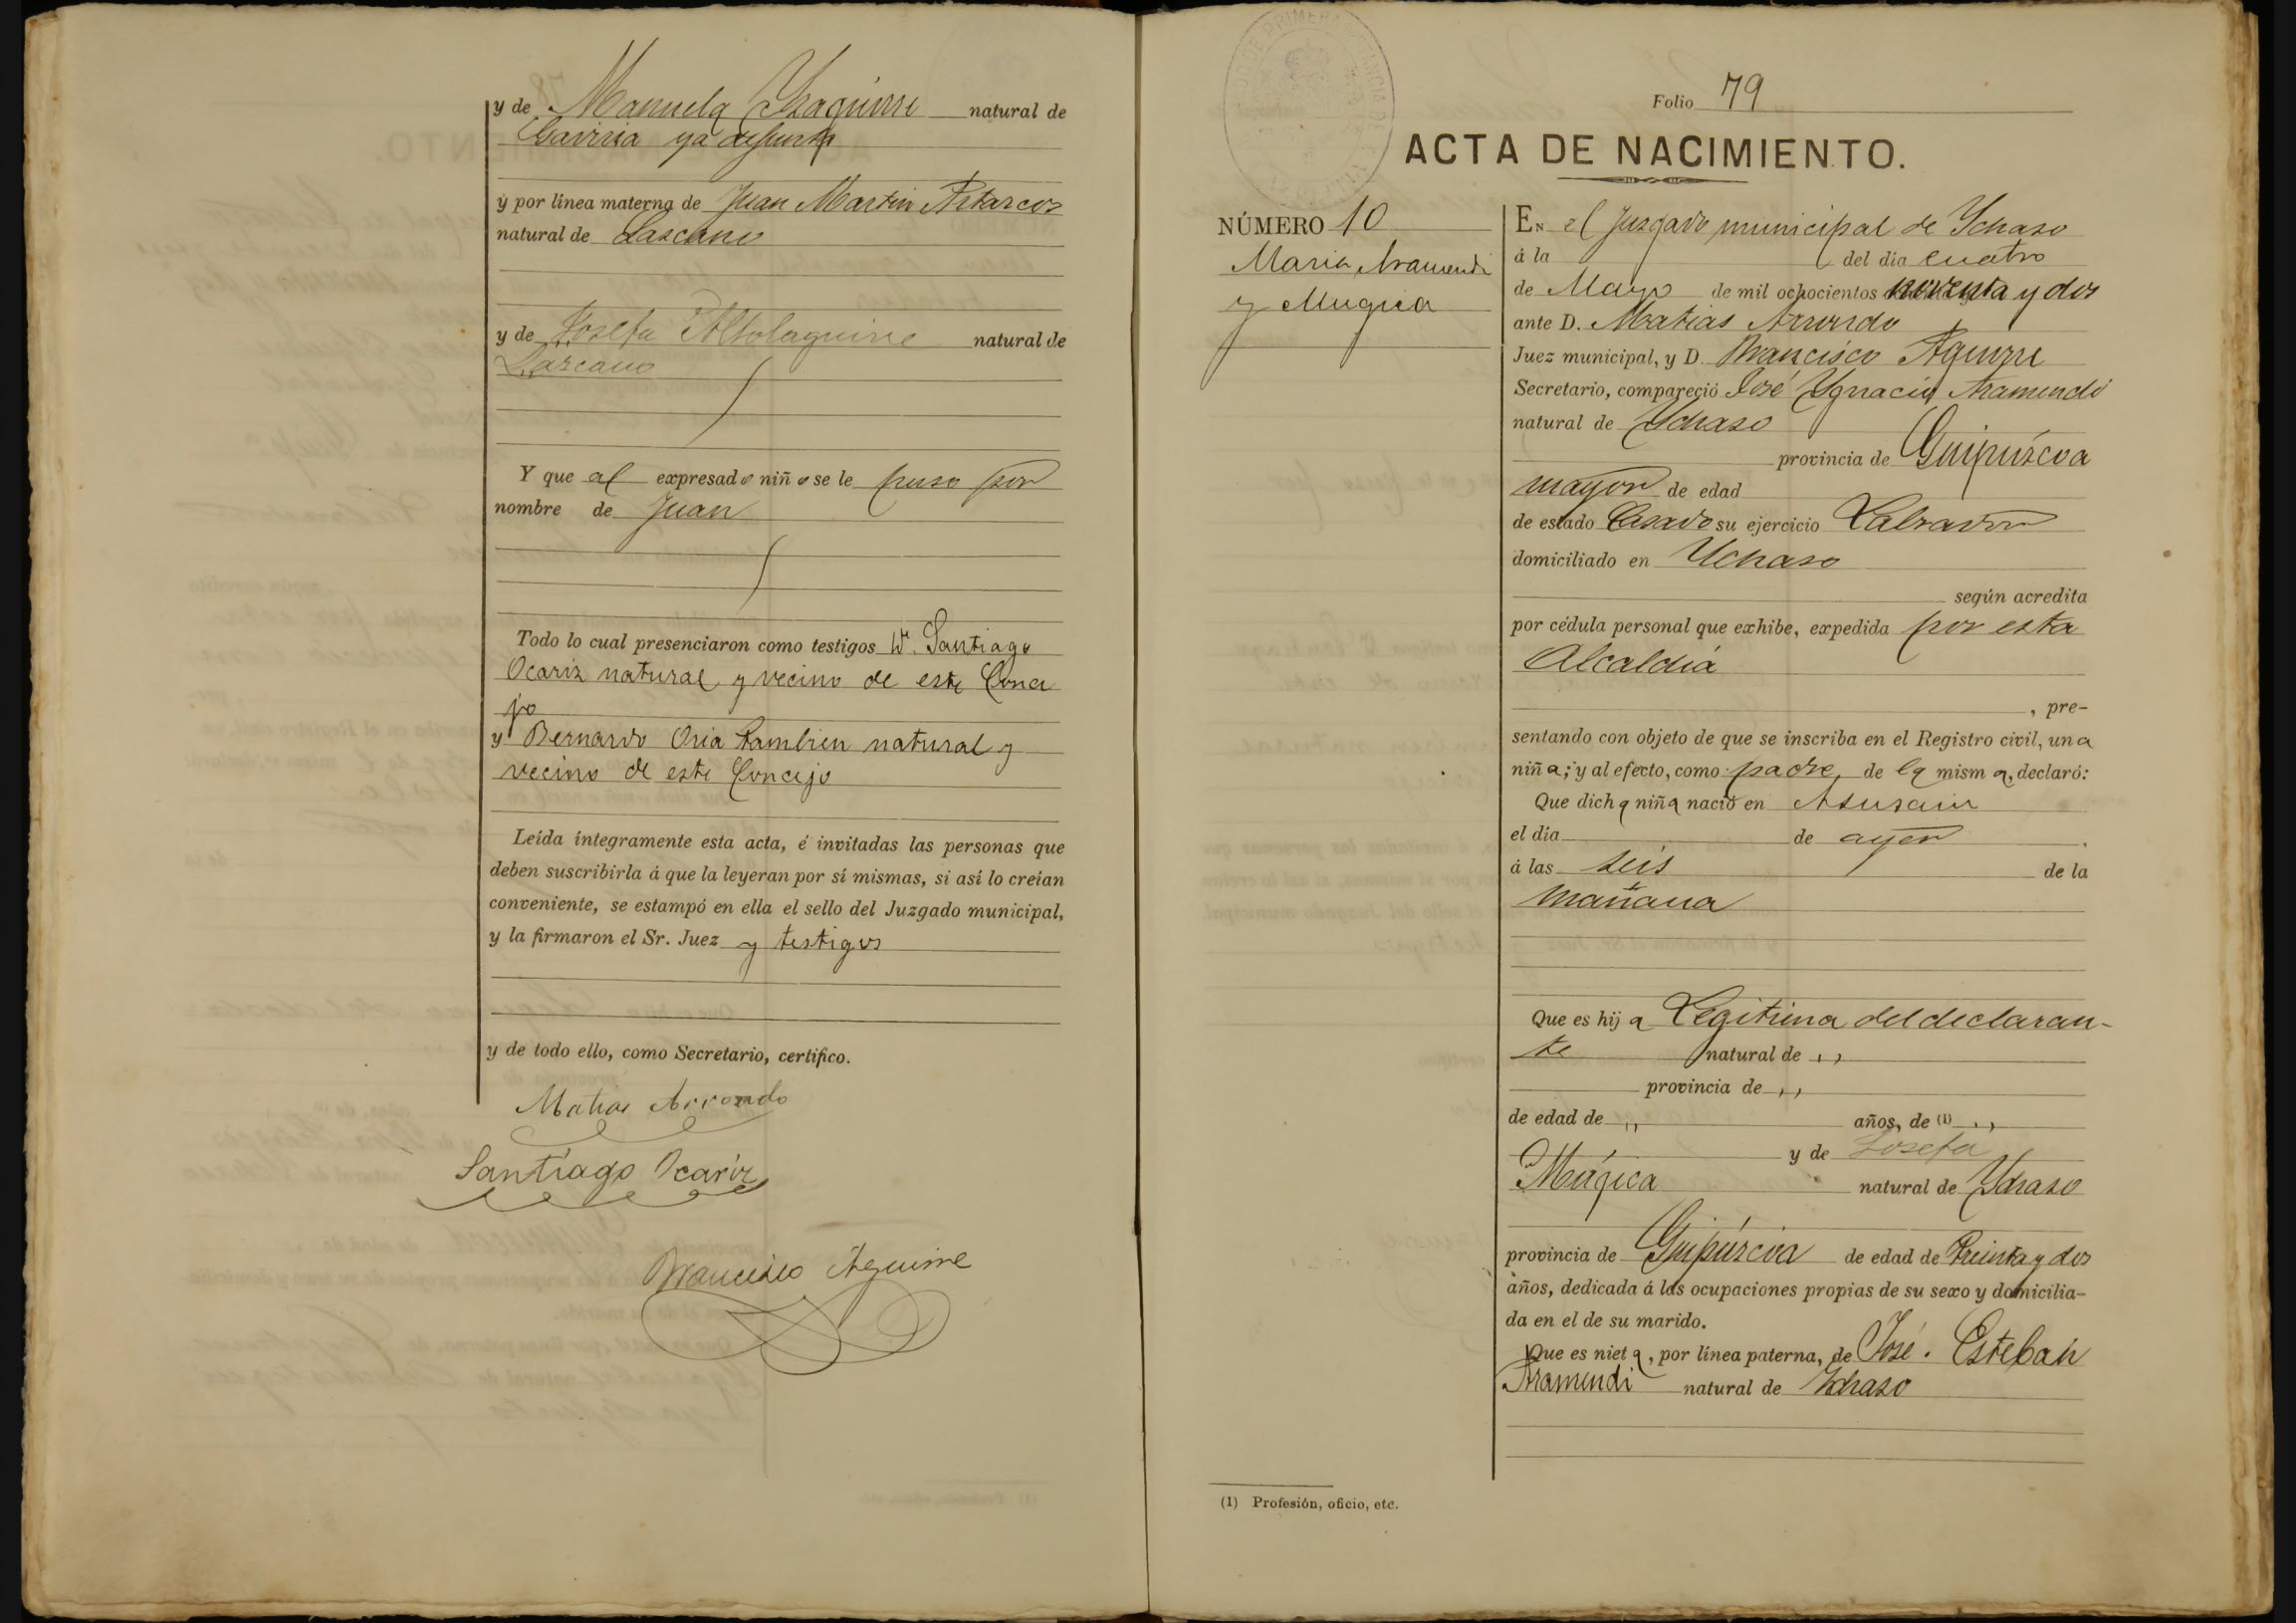 y de Manuela Yzaguirre natural de
Gaviria ya difunta
y por línea materna de Juan Martin Astarcoz
natural de Lazcano
y de Josefa Altolaguirre natural de
Lazcano
Y que al expresado niño se le puso por
nombre de Juan
Todo lo cual presenciaron como testigos Dn. Santiago
Ocariz natural y vecino de este Conce
jo
y Bernardo Oria tambien natural y
vecino de este Concejo
Leída íntegramente esta acta, é invitadas las personas que
deben suscribirla á que la leyeran por sí mismas, si así lo creían
conveniente, se estampó en ella el sello del Juzgado municipal,
y la firmaron el Sr. Juez y testigos
y de todo ello, como Secretario, certifico.
Matias Arrondo
Santiago Ocariz
Francisco Aguirre
Folio 79
ACTA DE NACIMIENTO.
NÚMERO 10
Maria Aramendi
y Mugica
EN el Juzgado municipal de Ychaso
á la del día cuatro
de Mayo de mil ochocientos noventa y dos
ante D. Matias Arrondo
Juez municipal, y D. Francisco Aguirre
Secretario, compareció José Ygnacio Aramendi
natural de Ychaso
provincia de Guipúzcoa
mayor de edad
de estado Casado su ejercicio Labrador
domiciliado en Ychaso
según acredita
por cédula personal que exhibe, expedida por esta
Alcaldia
, pre-
sentando con objeto de que se inscriba en el Registro civil, una
niña; y al efecto, como padre, de la misma, declaró:
Que dicha niña nació en Asurain
el día de ayer
á las seis de la
mañana
Que es hija Legitima del declaran-
te natural de ,,
provincia de ,,
de edad de ,, años, de (1) ,,
y de Josefa
Múgica natural de Ychaso
provincia de Guipúzcoa de edad de treinta y dos
años, dedicada á las ocupaciones propias de su sexo y domicilia-
da en el de su marido.
Que es nieta, por línea paterna, de José Esteban
Aramendi natural de Ychaso
(1) Profesión, oficio, etc.